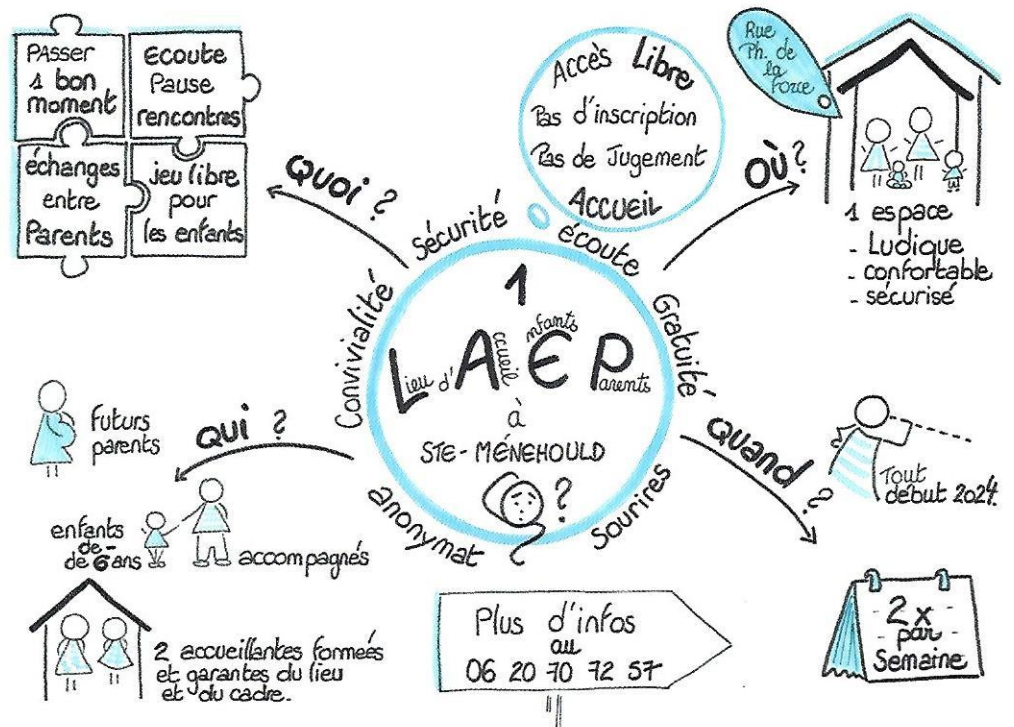 PAsser
1 bon
moment
Ecoute
Pause
rencontres
échanges
entre
Parents
jeu libre
pour
les enfants
QUOI ?
Accès Libre
Pas d'inscription
Pas de Jugement
ACCUEIL
Rue
Ph. de
la
Force
OÙ ?
1 espace
- Ludique
- confortable
- sécurisé
Convivialité
Sécurité
écoute
Gratuité
sourires
anonymat
1
Lieu d'Accueil Enfants Parents
à
STE-MÉNEHOULD
?
QUI ?
futurs
parents
enfants
de -
de 6 ans
accompagnés
2 accueillantes formées
et garantes du lieu
et du cadre.
QUAND ?
Tout
début 2024.
2 x
par
Semaine
Plus d'infos
au
06 20 70 72 57